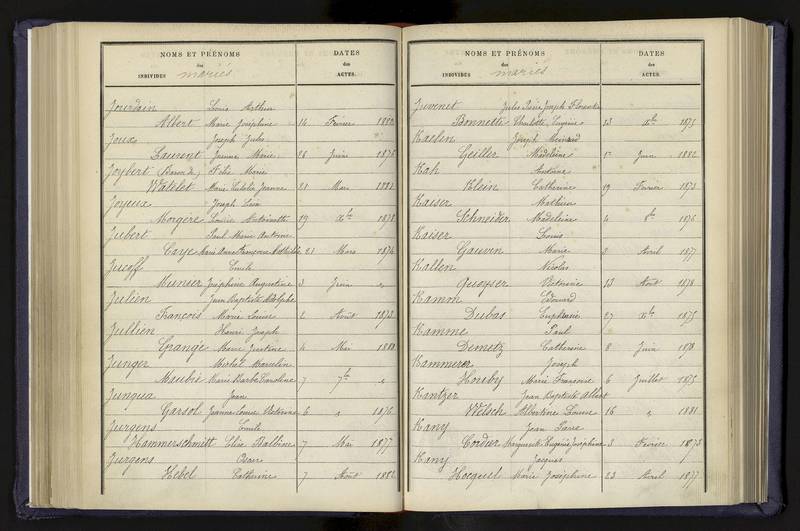 NOMS ET PRÉNOMS
des
INDIVIDUS mariés
DATES
des
ACTES.
Jourdain Louis Arthur
Albert Marie Joséphine 14 Février 1882
Joux Joseph Jules
Laurent Jeanne Marie 28 Juin 1876
Joybert (Baron de) Félix Marie
Watelet Marie Eulalie Jeanne 21 Mars 1882
Joyeux Joseph Léon
Morgère Louise Antoinette 19 Xbre 1878
Jubert Paul Marie Antoine
Caye Marie Anne Françoise Mathilde 21 Mars 1874
Jucoff Emile
Munier Joséphine Augustine 3 Juin "
Julien Jean Baptiste Adolphe
François Marie Louise 2 Août 1873
Jullien Henri Joseph
Grange Marie Justine 4 Mai 1880
Junger Michel Marcelin
Maubié Marie Barbe Caroline 7 7bre "
Jungua Jean
Garsol Jeanne Louise Victorine 6 " 1876
Jurgens Emile
Hammerschmitt Elise Balbine 7 Mai 1877
Jurgens Oscar
Hebel Catherine 7 Août 1882
NOMS ET PRÉNOMS
des
INDIVIDUS mariés
DATES
des
ACTES.
Juvenet Jules Pierre Joseph
Bonnette Charlotte Eugénie 23 Xbre 1875
Kaelin Joseph Meinrad
Geiller Madeleine Juin 1882
Kah
Klein Catherine 19 Février 1873
Kaiser Mathieu
Schneider Madeleine 4 8bre 1876
Kaiser Louis
Gauvin Marie 3 Avril 1877
Kallen Nicolas
Quoyser Victorine 13 Août 1878
Kamm Edouard
Dubas Euphrasie 27 Xbre 1875
Kamme Paul
Demetz Catherine 8 Juin 1878
Kammerer Joseph
Housby Marie Françoise 6 Juillet 1875
Kantzer Jean Baptiste Albert
Welsch Albertine Louise 16 " 1881
Kany Jean Pierre
Cordier Marguerite Eugénie Joséphine 3 Février 1873
Kany Jacques
Hocquel Marie Joséphine 23 Avril 1877